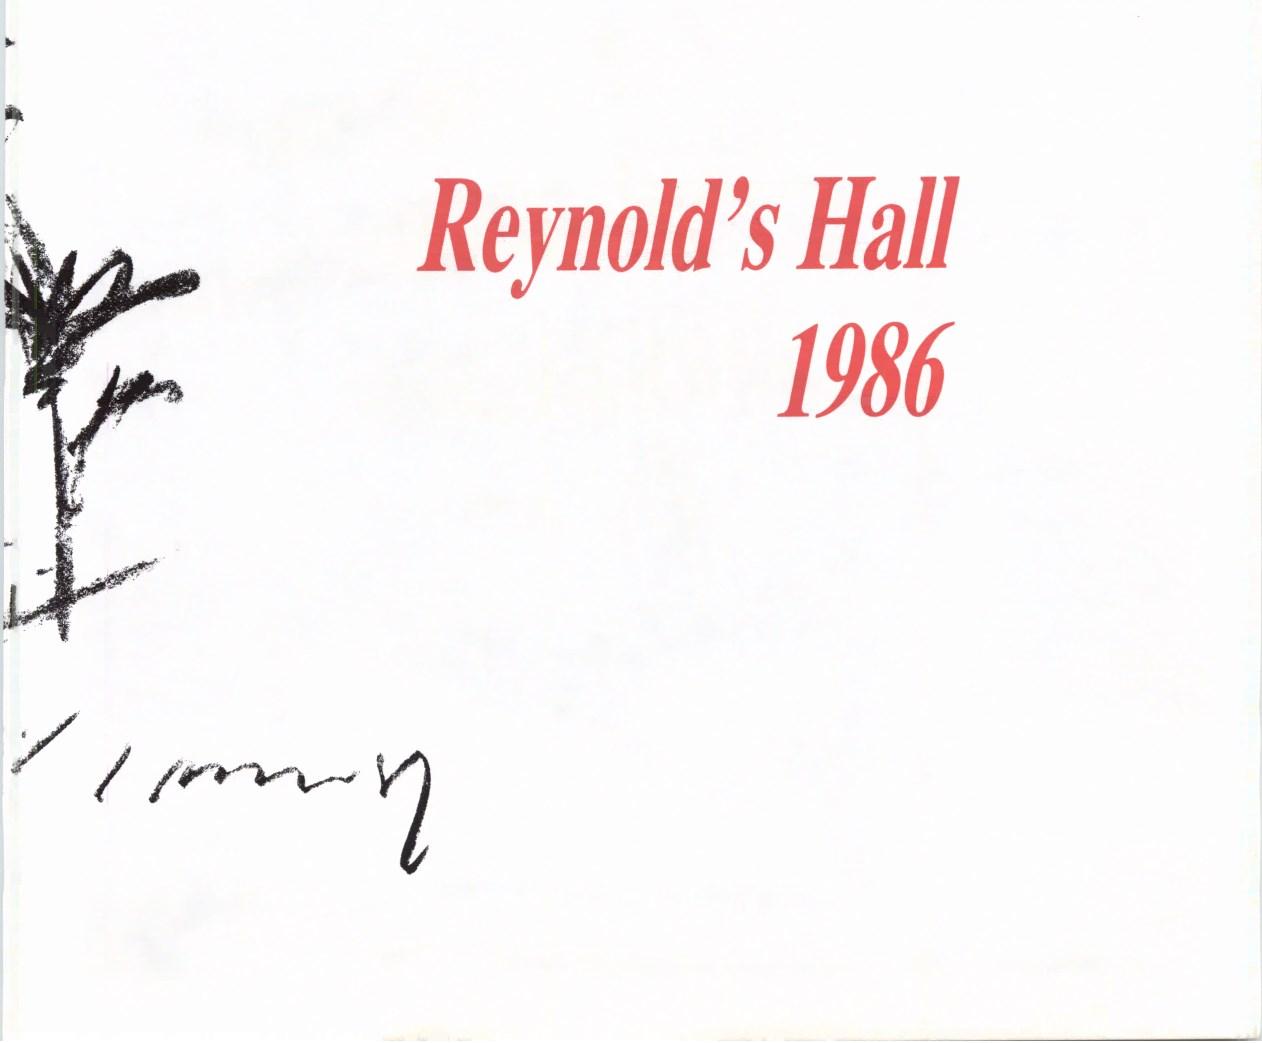 Reynold’s Hall
1986